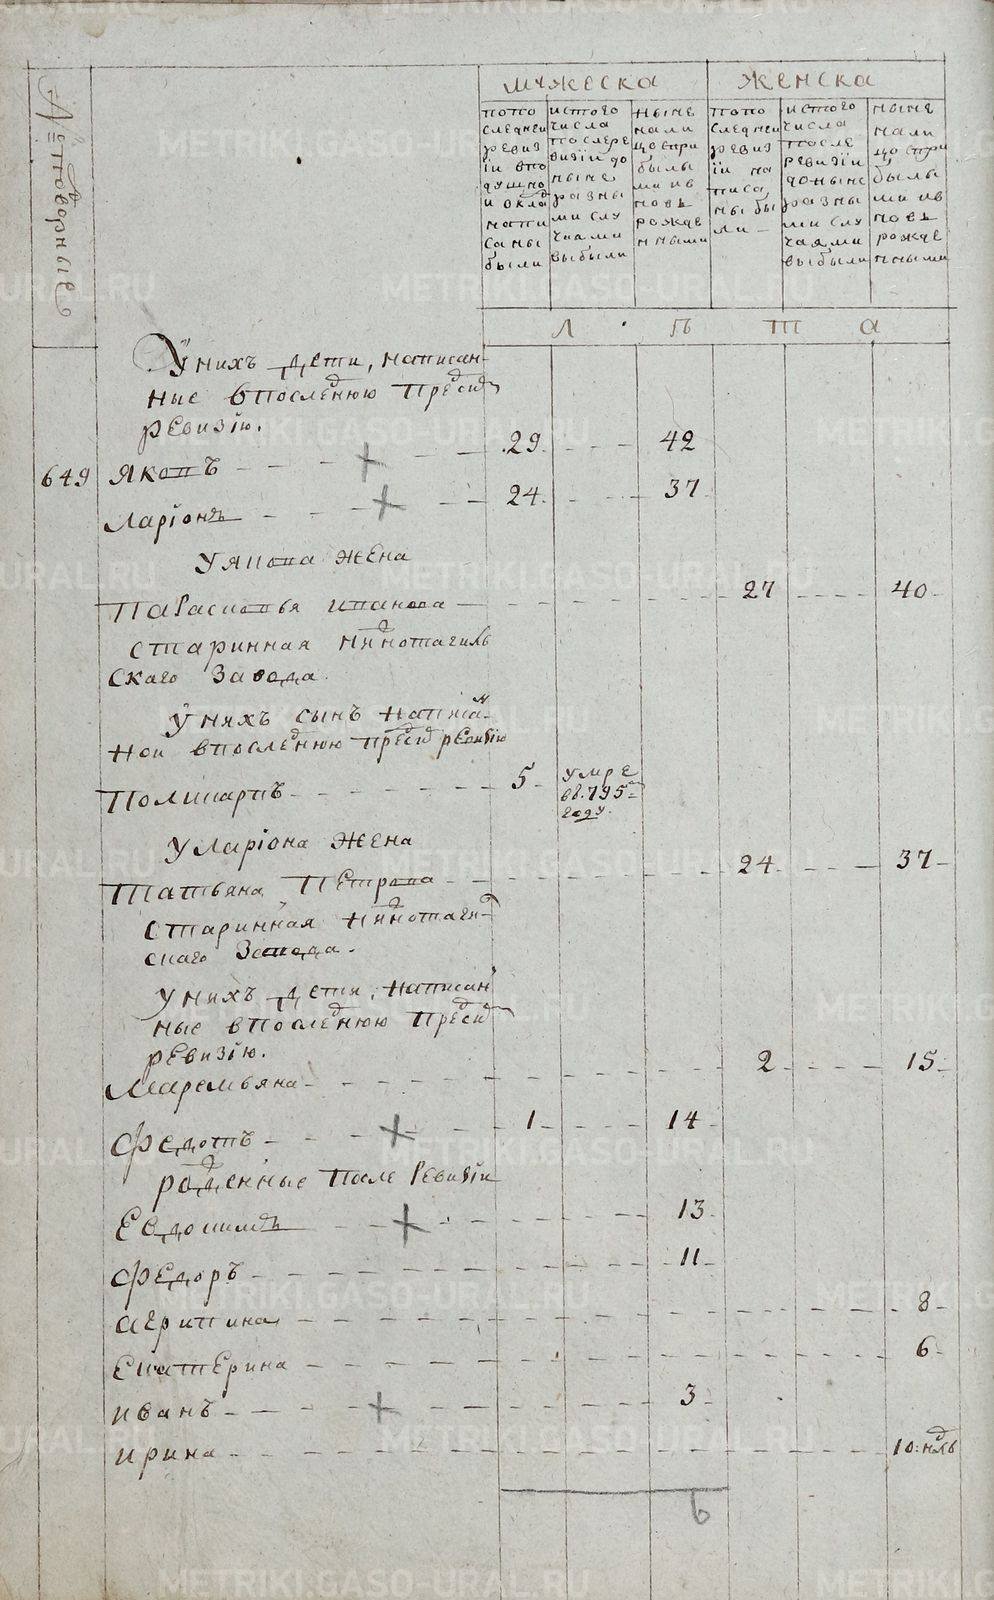 Дворовые
мужеска
женска
попо
следнеи
ревиз
iи впо
душно
и оклад
напи
саны
были
исtого
числа
послере
визiи до
ныне
разны
ми слу
чаями
выбыли
ныне
нали
цо спри
былы
ми ив
новь
рожде
нными
попо
следнеи
ревиз
iи на
писа
ны бы
ли
истого
числа
после
ревизiи
доныне
разны
ми слу
чаями
выбыли
ныне
нали
цо спри
былы
ми ив
новь
рожде
нными
Л Ѣ т а
У нихъ дети, написан-
ные впоследнюю пред
ревизiю.
649 Яковъ 29 42
Ларiонъ 24 37
У якова жена
Парасковья иванова 27 40
старинная нижнотагиль
скаго завода
У нихъ сынъ написан
нои впоследнюю пред ревизiю
Поликарпъ 5 умре
в ⹁795=
году
У Ларiона жена
Татьяна Петрова 24 37
старинная нижнотагил
скаго Завода.
У нихъ дети, написан
ные впоследнюю пред
ревизiю.
Маремьяна 2 15
Федотъ 1 14
рожденные после Ревизiи
Евдокимъ 13
Федоръ 11
агрипина 8
Екатерина 6
иванъ 3
ирина 10: нѣдль
6
METRIKI.GASO-URAL.RU